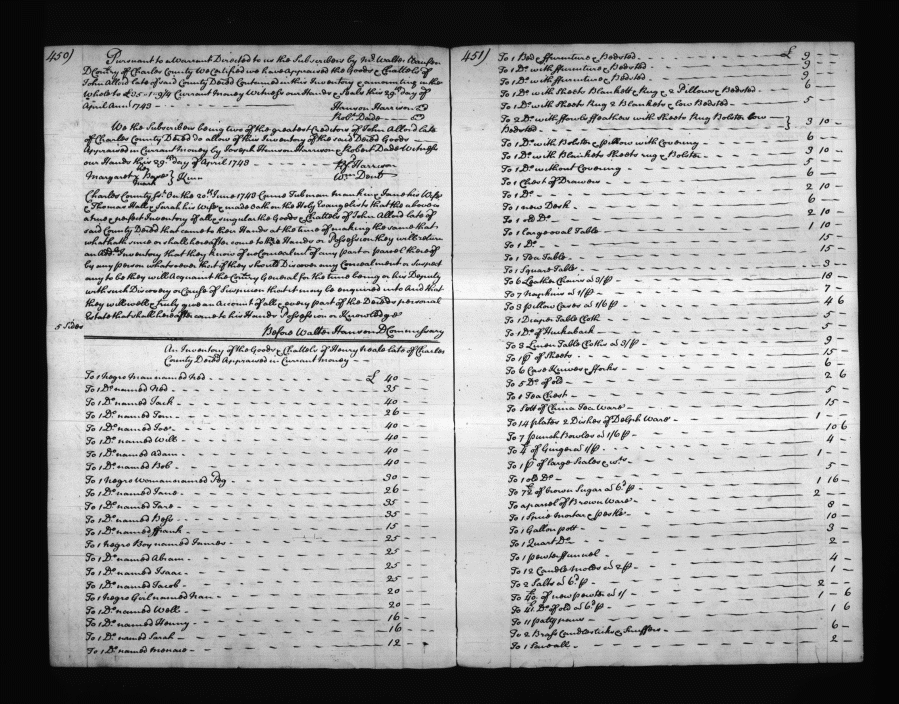 450)
Pursuant to a Warrant Directed to us the Subscribers by Mr. Walter Hanson
D Comty of Charles County We Certified we have Appraised the Goods & Chattells of
John Allord late of said County Deced Contained in this Inventory & amounting in the
Whole to £ Currant Money Witness our Hands & Seals this 29th day of
April Anno 1743
Hanson Harrison
Robt. Dade
We the Subscribers being two of the greatest Creditors of John Allord late
of Charles County Deced Do allow of this Inventory of the said Deced Goods
Appraised in Currant money by Joseph Hanson Harrison & Robert Dade Witness
our Hands this 29th day of April 1743
Harrison
Margaret her mark
Wm. Dent
Charles County Sc. On the 20th June 1743 Came Tubman his Wife
& Thomas Hall & Sarah his Wife & made oath on the Holy Evangelists that the above is
a true & perfect Inventory of all & singular the Goods & Chattells of John Allord late of
said County Deced that came to their Hands at the time of making the same that
what hath since or shall hereafter come to their Hands or Possession they will return
an Addl. Inventory that they know of no Concealment of any part or parcel thereof
by any person whatsoever that if they should Discover any Concealment or Suspect
any to be they will Acquaint the Comty General for the time being or his Deputy
with such Discovery or Cause of Suspicion that it may be enquired into And that
they will well & truly give an Account of all & every part of the Deceds personal
Estate that shall hereafter come to his Hands Possession or Knowledge
5 Sides
Before Walter Hanson D Commissary
An Inventory of the Goods & Chattels of Henry Neale late of Charles
County Deced Appraised in Currant money
To 1 Negro man named Ned £ 40 - -
To 1 Do. named Ned 35 - -
To 1 Do. named Jack 40 - -
To 1 Do. named Tom 26 - -
To 1 Do. named Joe 40 - -
To 1 Do. named Will 40 - -
To 1 Do. named Adam 40 - -
To 1 Do. named Bob 40 - -
To 1 Negro Woman named Peg 30 - -
To 1 Do. named Jane 26 - -
To 1 Do. named 35 - -
To 1 Do. named Bess 35 - -
To 1 Do. named ffrank 15 - -
To 1 Negro Boy named James 25 - -
To 1 Do. named Abram 25 - -
To 1 Do. named Isaac 25 - -
To 1 Do. named Jacob 25 - -
To 1 Negro Girl named Nan 20 - -
To 1 Do. named Nell 20 - -
To 1 Do. named Henny 16 - -
To 1 Do. named Sarah 16 - -
To 1 Do. named 12 - -
451)
To 1 Bed & ffurniture & Bedsted £ 9 -
To 1 Do. with ffurniture & Bedsted 9 -
To 1 Do. with ffurniture & Bedsted 9 -
To 1 Do. with Sheets Blankett & Rug & 2 Pillows & Bedsted 6 -
To 1 Do. with Sheets Rug 2 Blankets & low Bedsted 5 -
To 2 Do. with ffeathers with Sheets Rug Bolster low
Bedsted } 3 10 -
To 1 Do. with Bolster & Pillow with Covering 6 -
To 1 Do. with Blankets Sheets rug & Bolster 3 10
To 1 Do. without Covering 5 -
To 1 Chest of Drawers 6 -
To 1 Do. 2 10
To 1 new Desk 6 -
To 1 old Do. 2 10
To 1 Large oval Table 1 10
To 1 Do. 15
To 1 Tea Table 15
To 1 Square Table 3 -
To 6 Leather Chairs a 3/p 18 -
To 7 Napkins a 1/p 7 -
To 3 Pillow Cases a 1/6 p 4 6
To 1 Diaper Table Cloth 5 -
To 1 Do. of Huckaback 5 -
To 3 Linen Table Cloths a 3/p 9 -
To 1 pr of Sheets 15 -
To 6 Case Knives & fforks 6 -
To 5 Do. of old 2 6
To 1 Tea Chest 5 -
To Sett of China Tea Ware 15 -
To 14 plates 2 Dishes of Delph Ware 1 -
To 7 Punch Bowles a 1/6 p 10 6
To 4 lb of Ginger a 1/p 4 -
To 1 pr of large Scales & wts. 1 -
To 1 old Do. 5 -
To 72 lb of brown Sugar a 6d p 1 16 -
To a parcel of Brown Ware 2 -
To 1 Mortar & pestle 8 -
To 1 Gallon pott 10 -
To 1 Quart Do. 3 -
To 1 pewter ffunnel 2 -
To 12 Candle molds a 2/p
To 2 Salts a 6d p 1 -
To of new pewter a 1/ 2 -
To 41 Do. of old a 6d p 1 - 6
To 11 patty pans 1 6
To 2 Brass Candlesticks & Snuffers 6 -
To 1 2 -